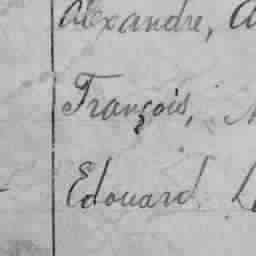 Alexandre,
François,
Edouard